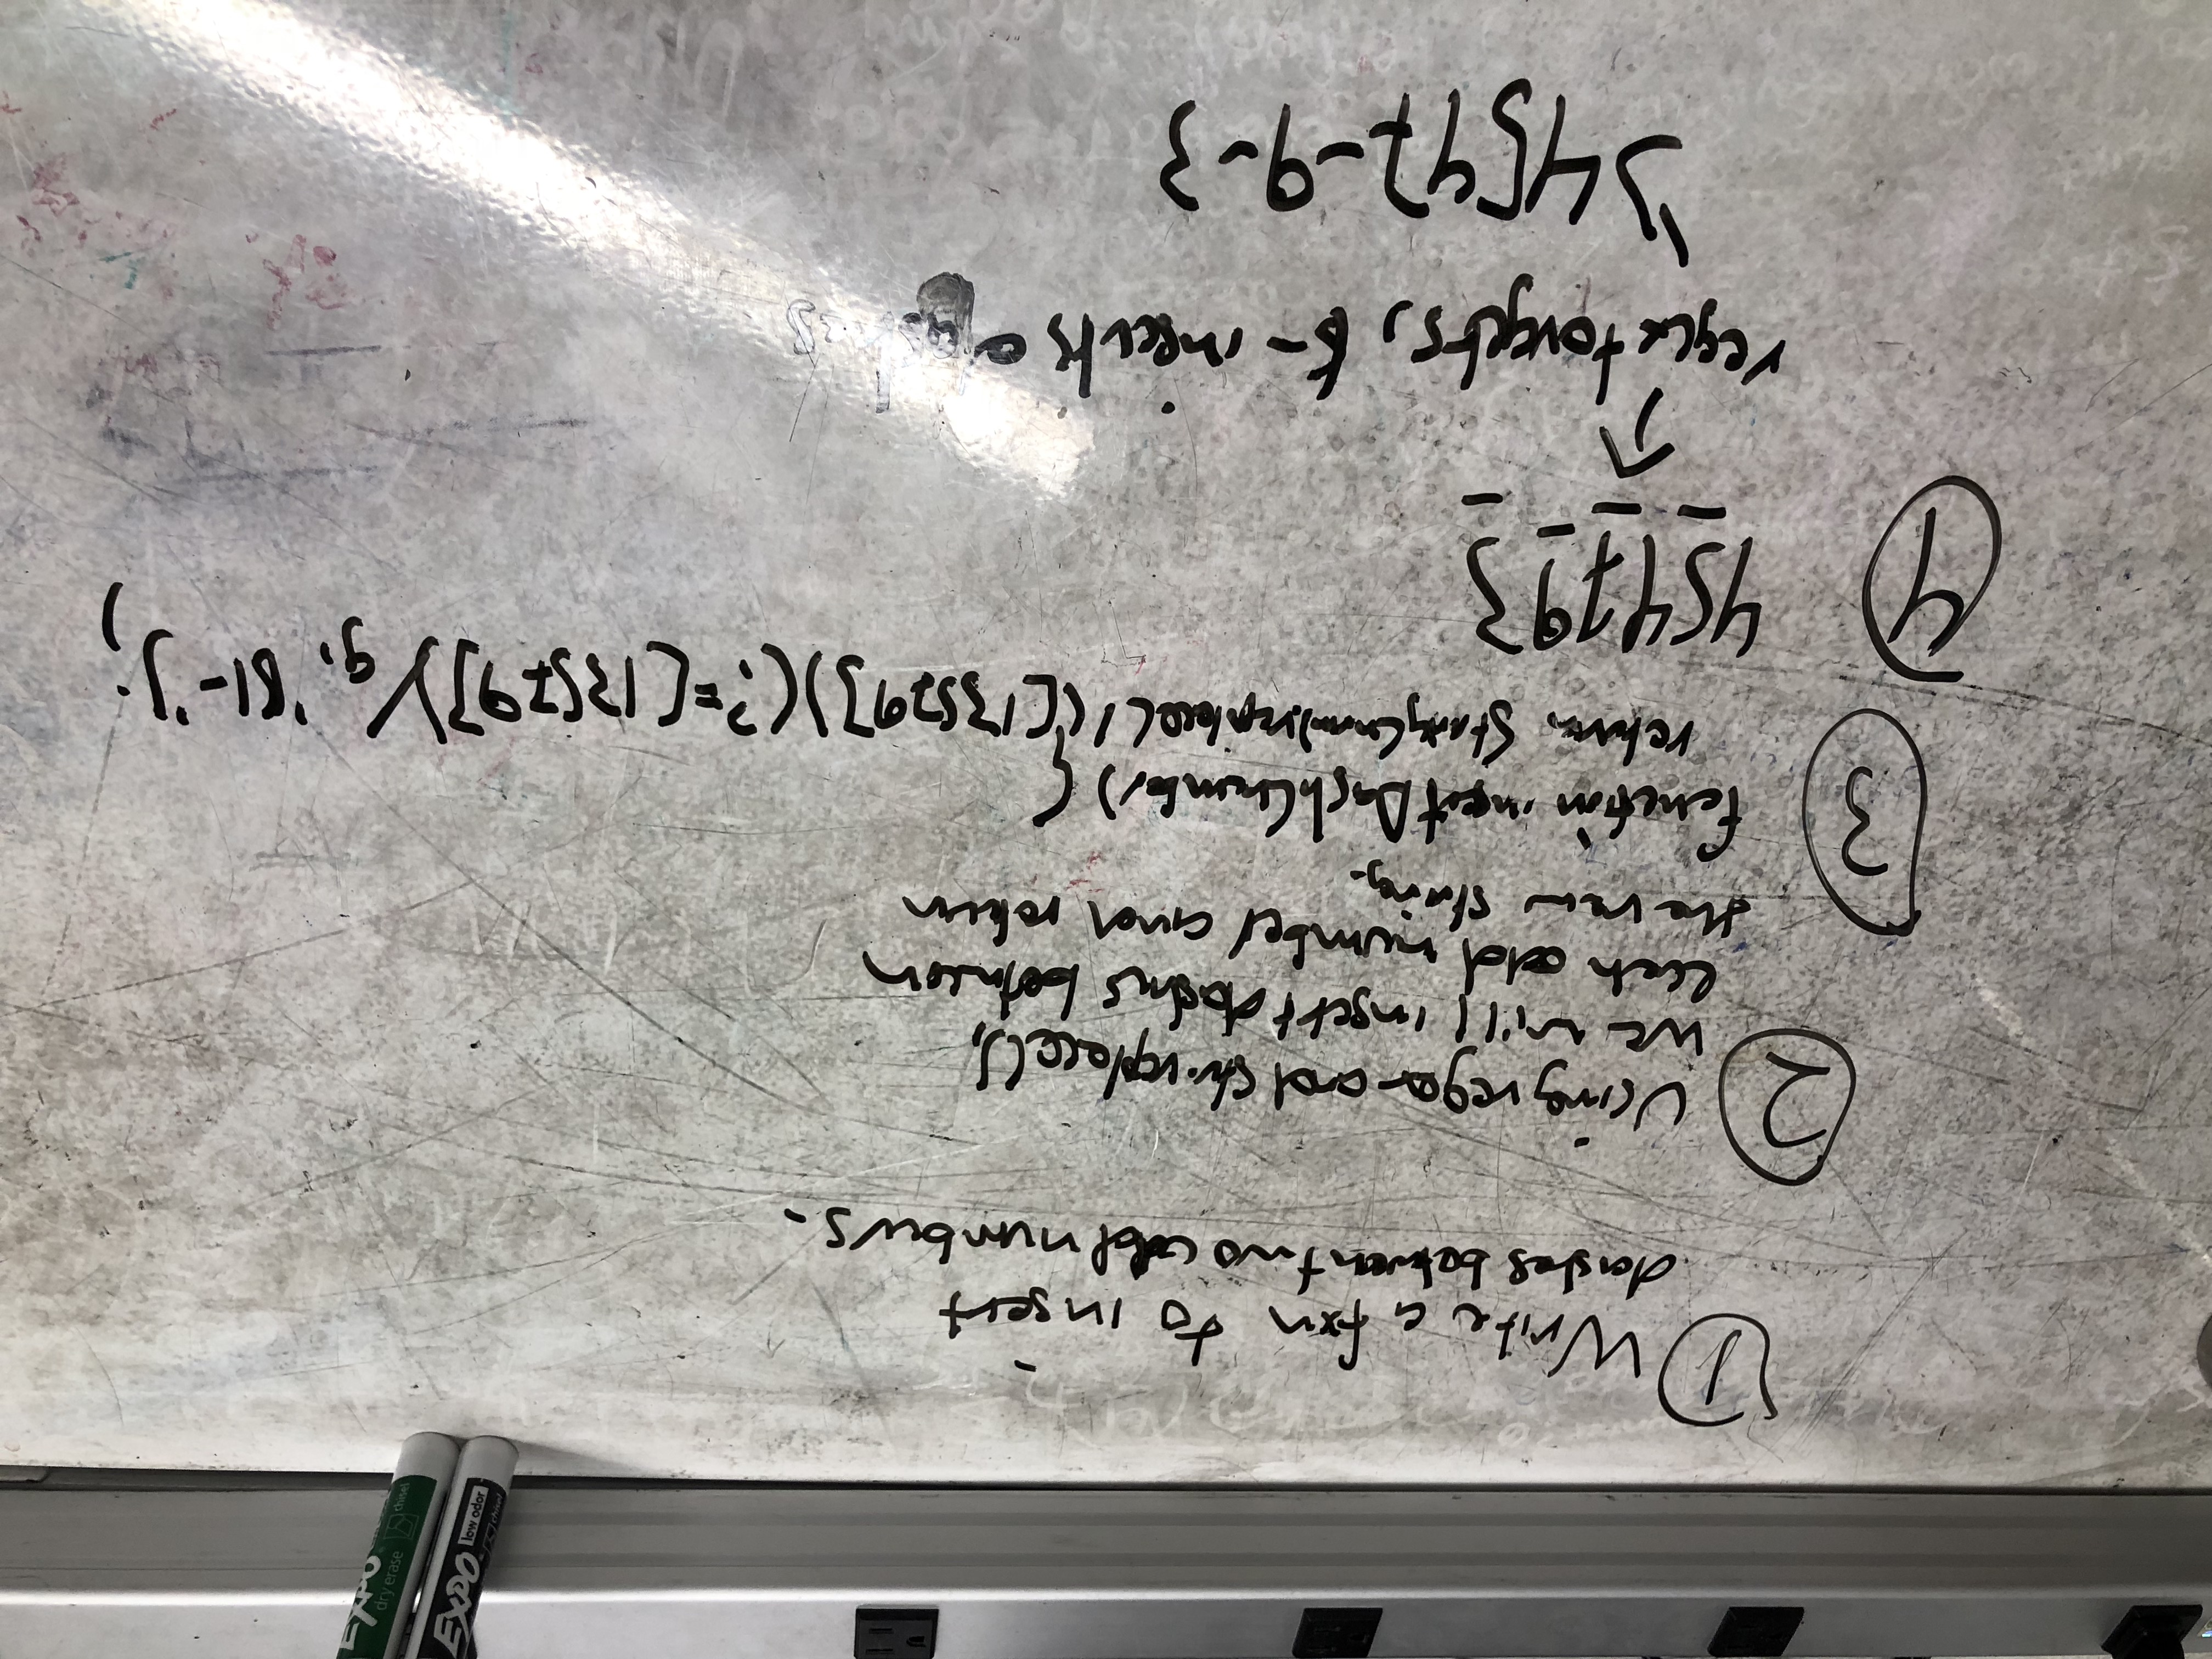 EXPO
dry erase
chisel
EXPO
low odor
chisel
① Write a fxn to insert
dashes between two odd numbers.
② Using regex and str.replace(),
we will insert dashes between
each odd number and return
the new string.
③ function insertDash(number) {
return String(num).replace(/([13579])(?=[13579])/g, '$1-');
④ 454793
regex targets, $- inserts a
4547-9-3